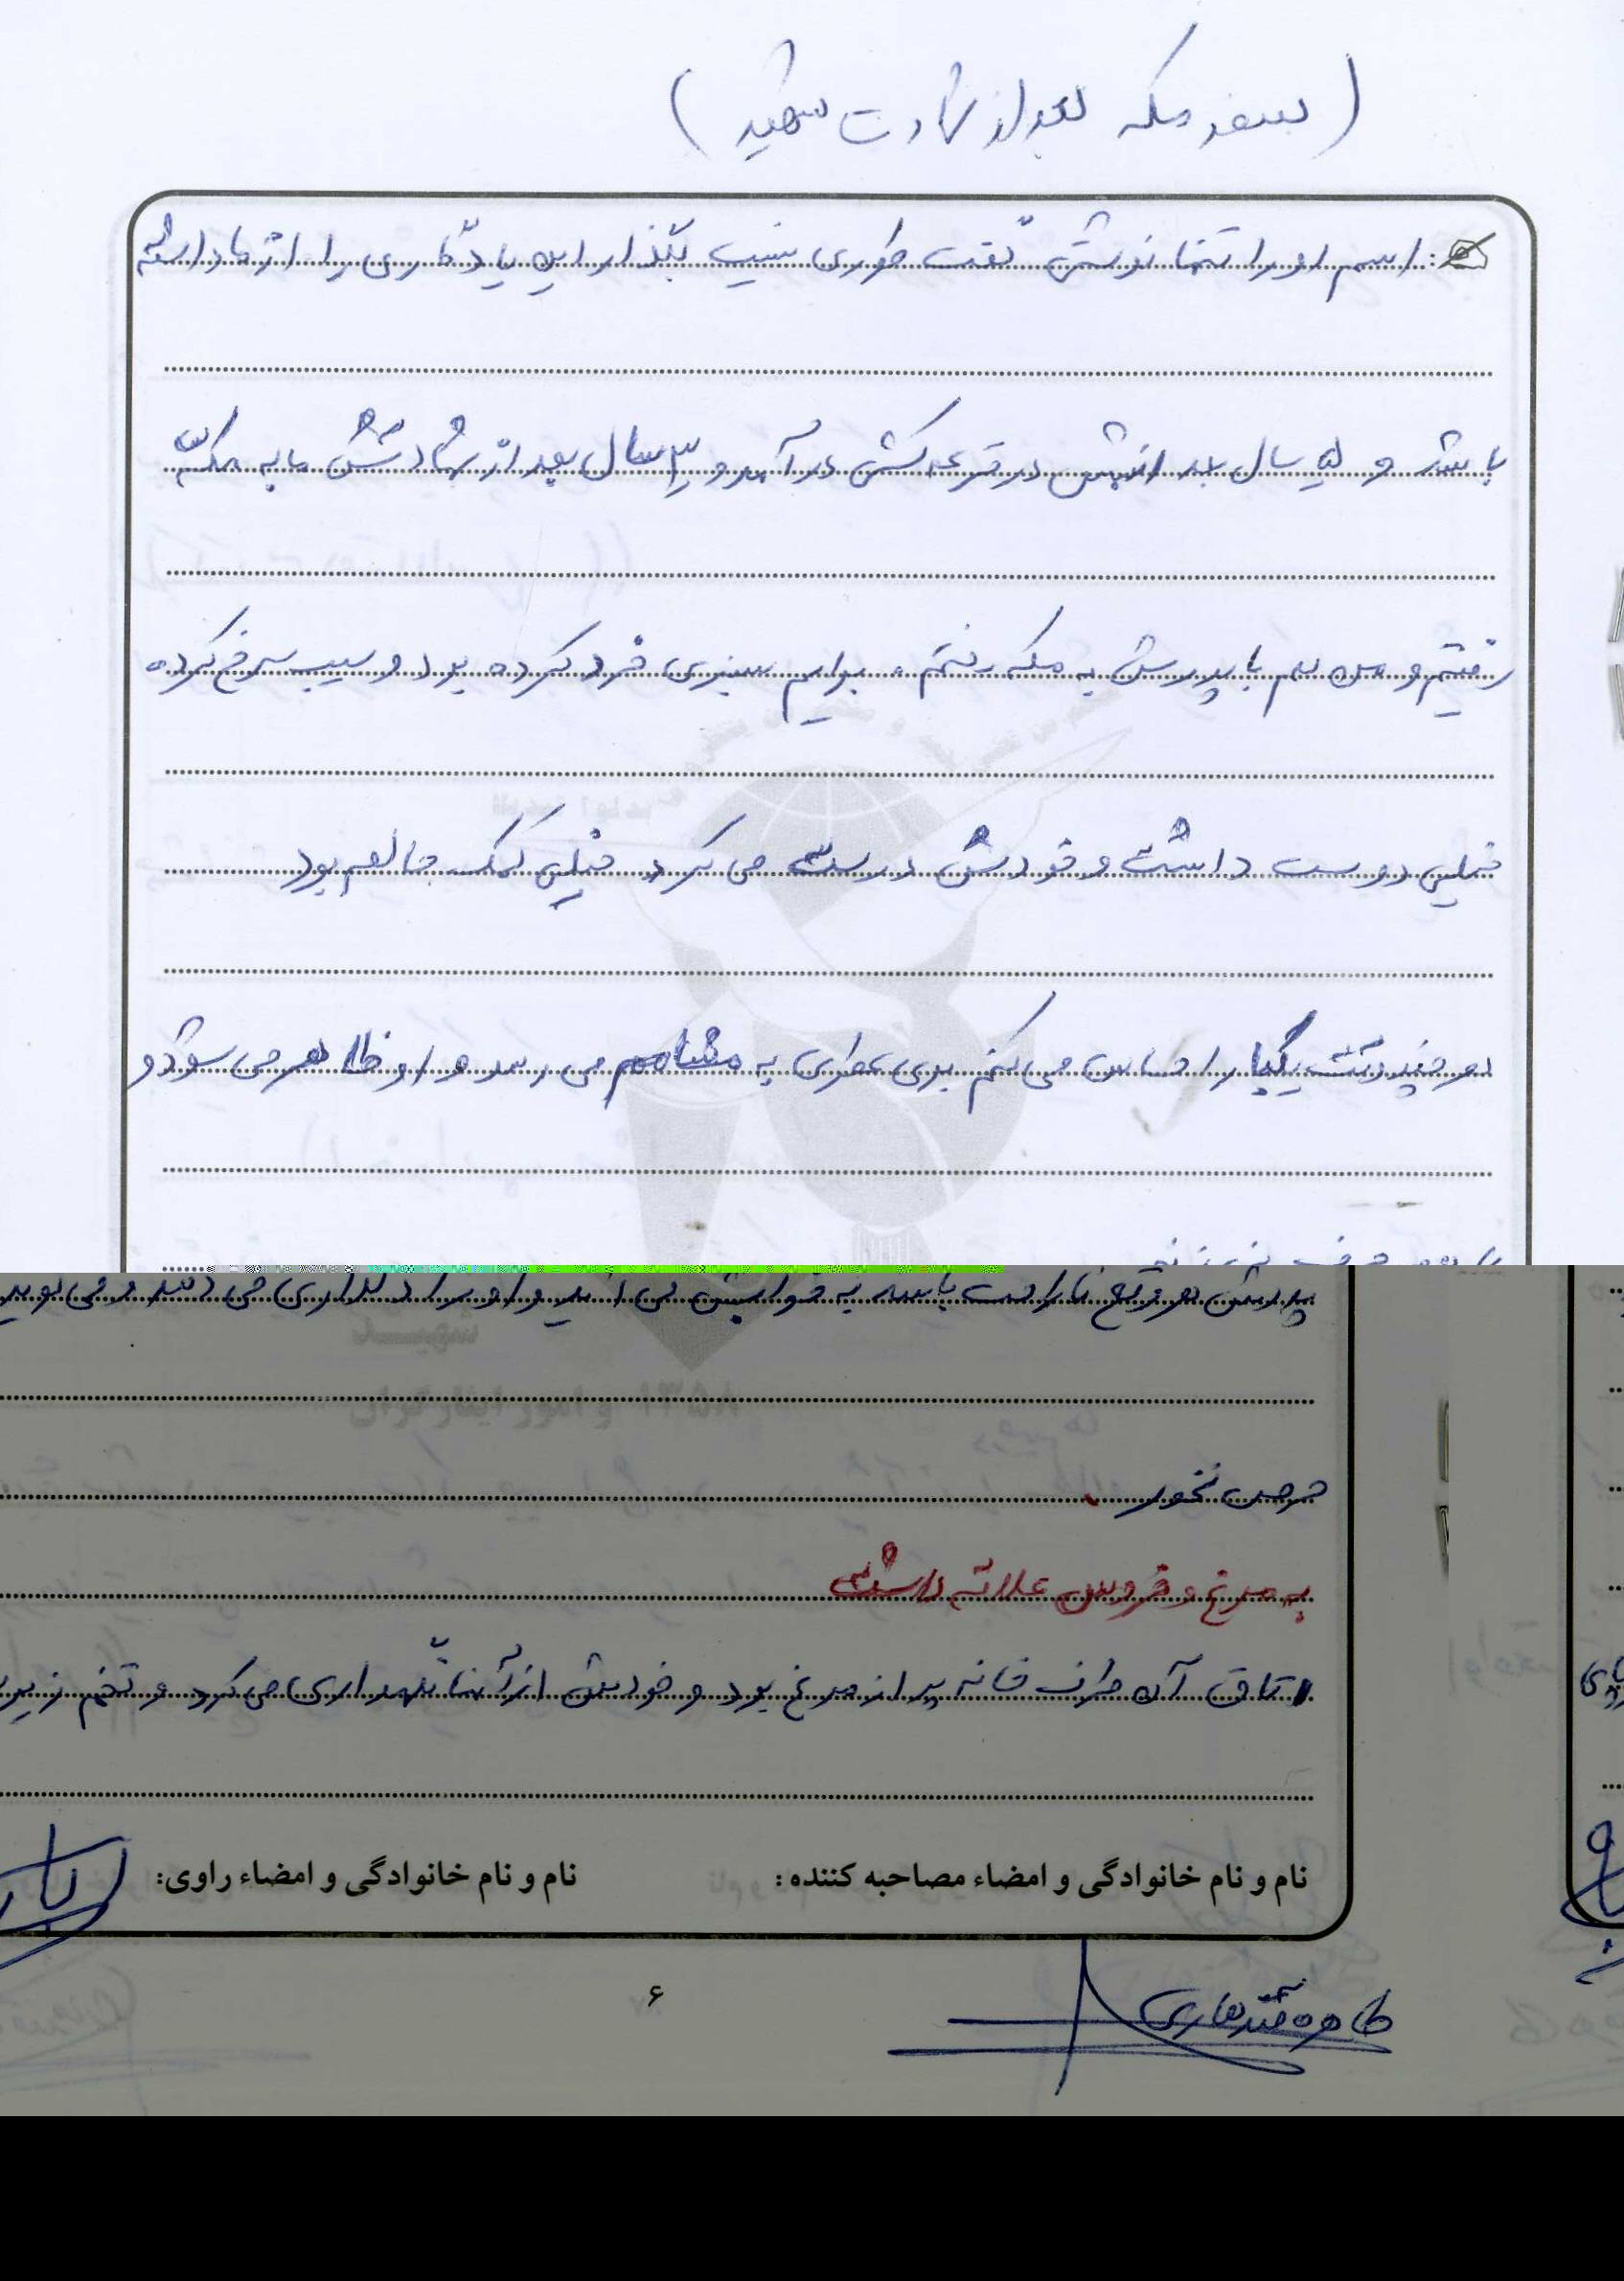 (سفر مکه بعد از شهادت شهید)
: اسم او را تنها نوشتن گفت طوری نیست بگذار این یادگاری را از ما داشته
باشد و ۵ سال بعد اسمش در قرعه کشی در آمد و ۳ سال بعد از شهادتش ما به مکه
رفتیم و من هم با پدرش به مکه رفتم. برایم سبزی خرد کرده بود و سیب سرخ کرده
خیلی دوست داشت و خودش درست می کرد خیلی کمک حالم بود
هر چند وقت یکبار احساس می کنم بوی عطری به مشامم می رسد و او ظاهر می شود و
پدرش هر وقت ناراحت باشد به خوابش می آید و او را دلداری می دهد و می گوید
حرص نخور
به مرغ و خروس علاقه داشت
اتاق آن طرف خانه پر از مرغ بود و خودش از آنها نگهداری می کرد و تخم زیر
نام و نام خانوادگی و امضاء مصاحبه کننده:
نام و نام خانوادگی و امضاء راوی:
طاهره قندهاری
۶